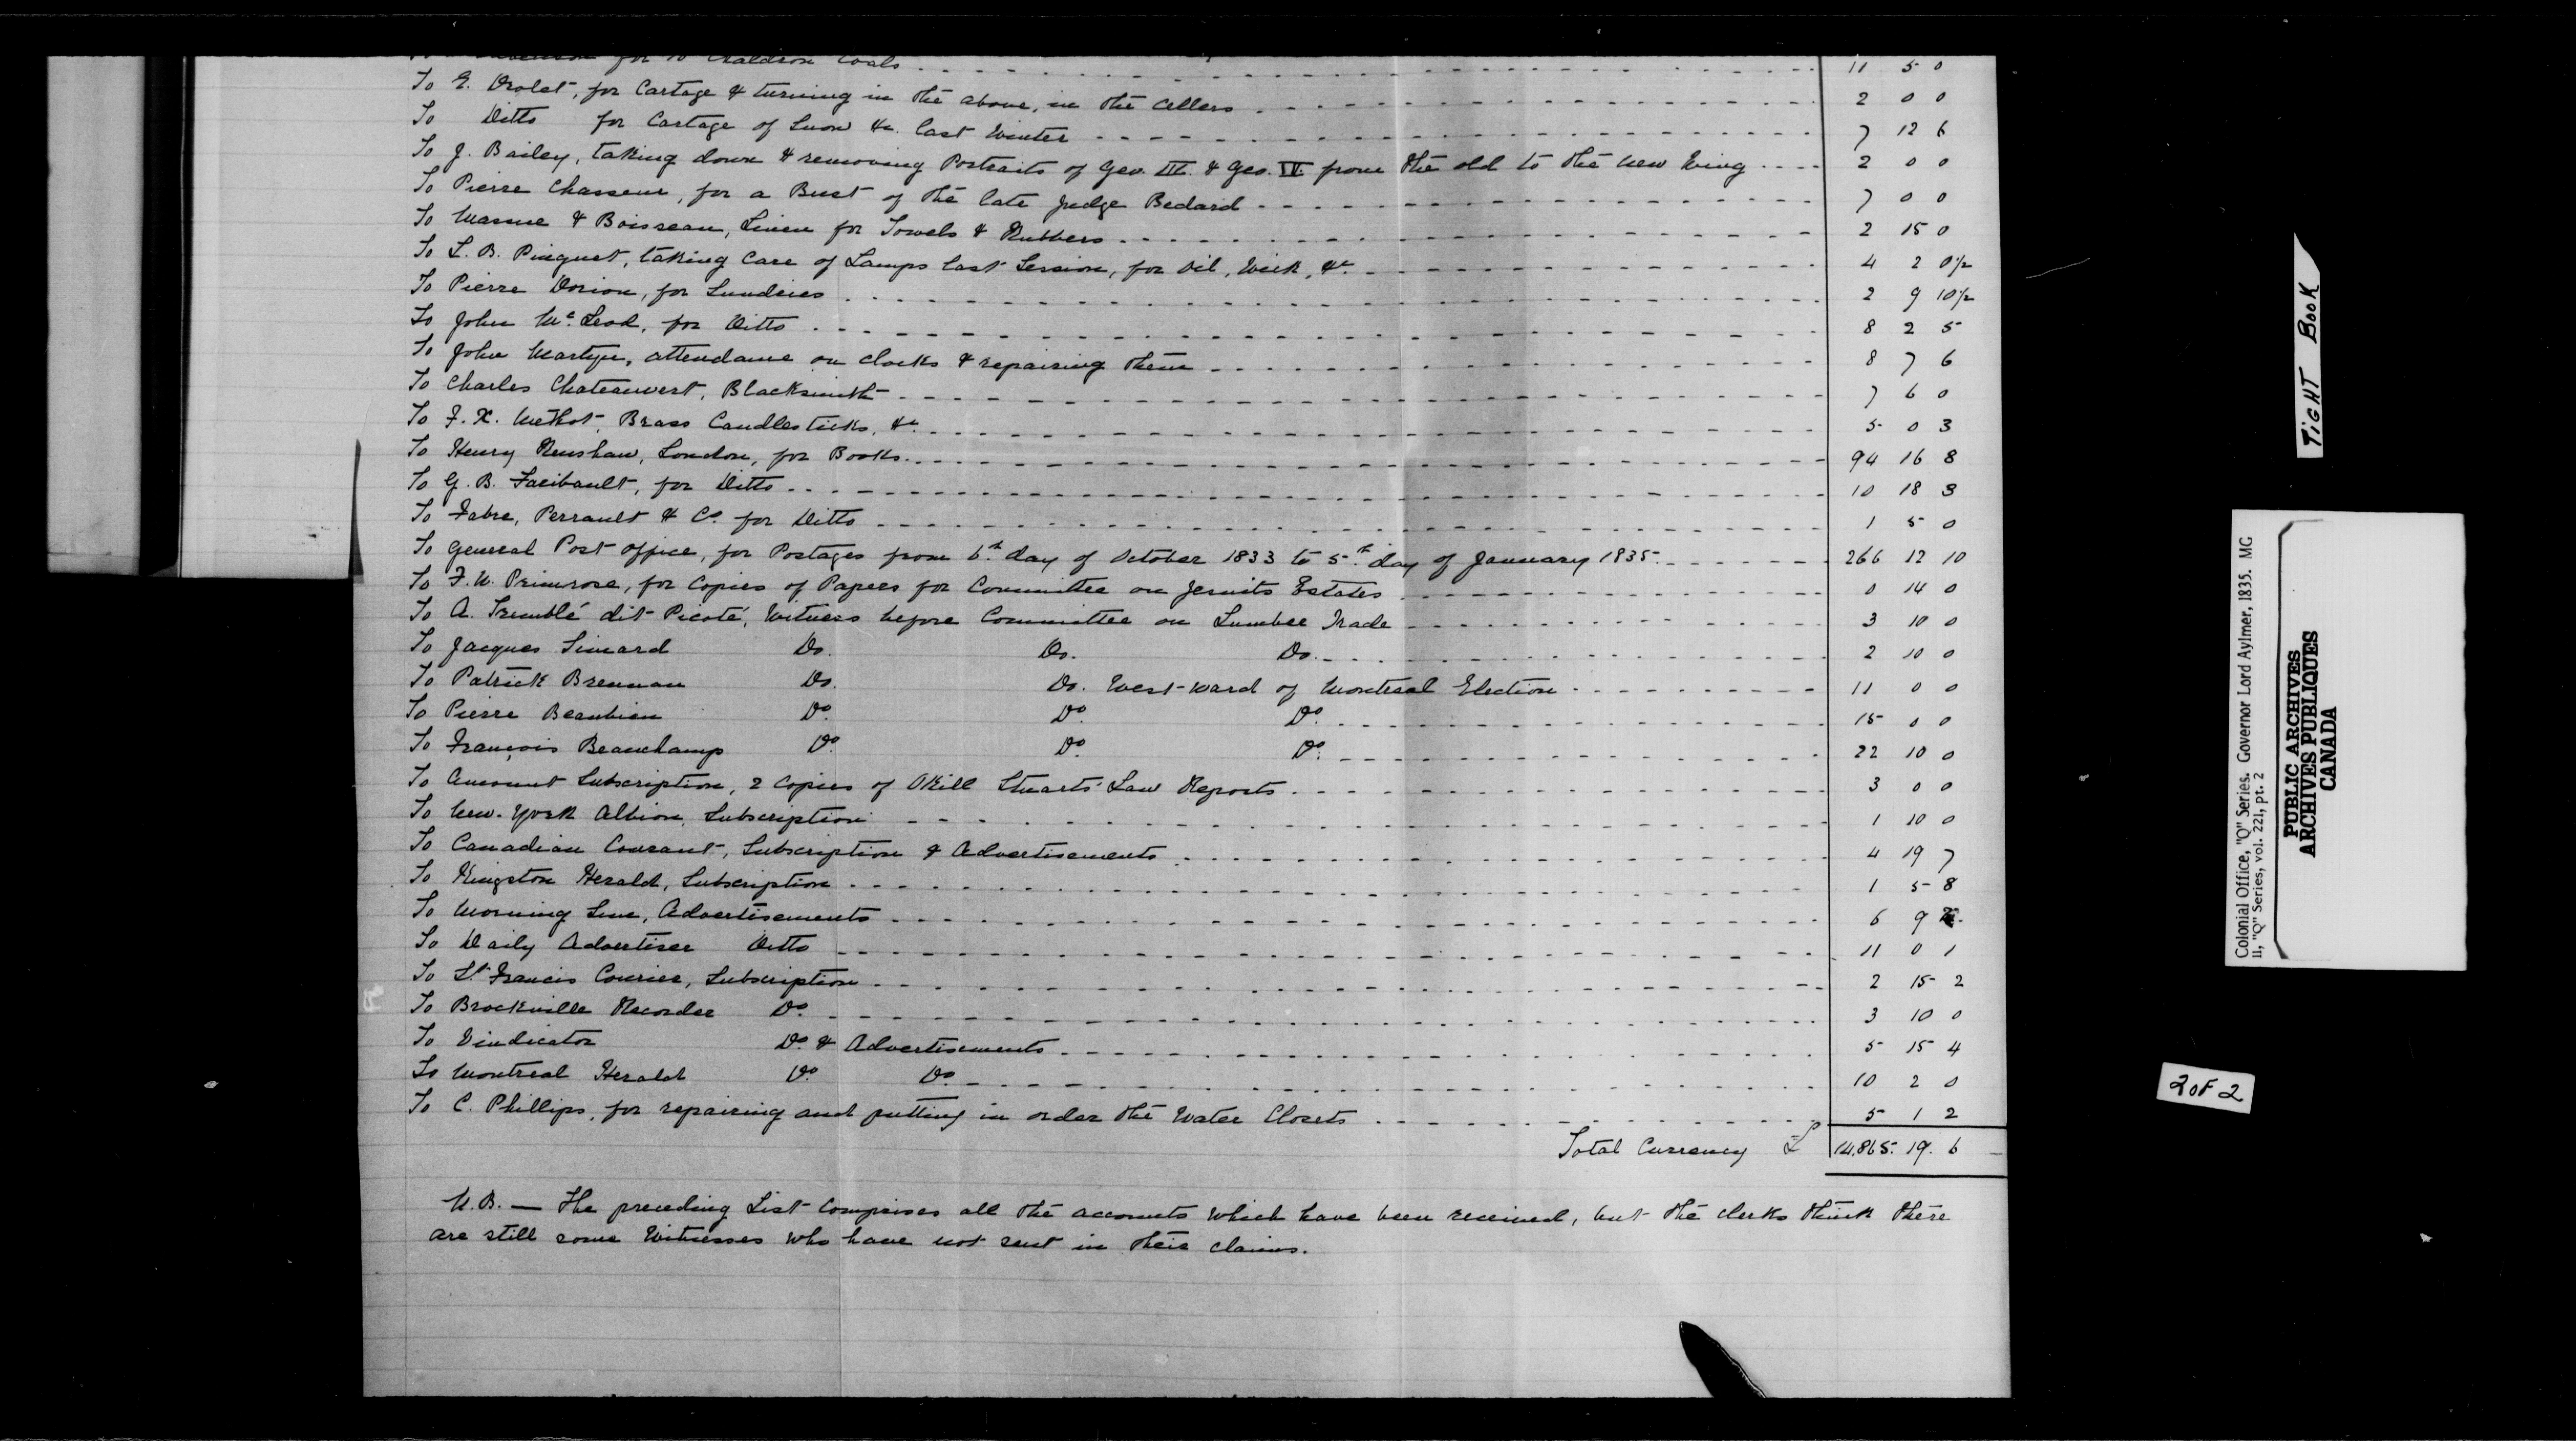 for 10 Chaldron Coals 11 5 0
To E. Drolet, for Cartage & turning in the above, in the Cellers 2 0 0
To Ditto for Cartage of Snow &c. last Winter 7 12 6
To J. Bailey, taking down & removing Portraits of Geo. III. & Geo. IV. from the old to the new Wing 2 0 0
To Pierre Chasseur, for a Bust of the late Judge Bedard 7 0 0
To Massue & Boisseau, Linen for Towels & Rubbers 2 15 0
To L. B. Pinguet, taking Care of Lamps last Session, for Oil, Wick, &c. 4 2 0½
To Pierre Dorion, for Sundries 2 9 10½
To John Mc. Leod, for Ditto 8 2 5
To John Martyn, attendance on clocks & repairing them 8 7 6
To Charles Chateauvert, Blacksmith 7 6 0
To F. X. Methot, Brass Candlesticks, &c. 5 0 3
To Henry Renshaw, London, for Books 94 16 8
To G. B. Faribault, for Ditto 10 18 3
To Fabre, Perrault & Co. for Ditto 1 5 0
To General Post office, for Postages from 6th. day of October 1833 to 5th. day of January 1835. 266 12 10
To F. W. Primrose, for Copies of Papers for Committee on Jesuits Estates 0 14 0
To A. Tremblé dit Picoté, Witness before Committee on Lumber Trade 3 10 0
To Jacques Simard Do. Do. Do. 2 10 0
To Patrick Brennan Do. Do. West-ward of Montreal Election 11 0 0
To Pierre Beaubien Do. Do. Do. 15 0 0
To François Beauchamp Do. Do. Do. 22 10 0
To Amount Subscription, 2 Copies of Okill Stuarts' Law Reports 3 0 0
To New-York Albion, Subscription 1 10 0
To Canadian Courant, Subscription & Advertisements 4 19 7
To Kingston Herald, Subscription 1 5 8
To Morning Advertisements 6 9
To Daily Advertiser Ditto 11 0 1
To St. Francis Courier, Subscription 2 15 2
To Brockville Recorder Do. 3 10 0
To Vindicator Do. & Advertisements 5 15 4
To Montreal Herald Do. Do. 10 2 0
To C. Phillips, for repairing and putting in order the Water Closets 5 1 2
Total Currency £ 14,865. 19. 6
N.B. — The preceding List comprises all the accounts which have been received, but the clerks think there
are still some Witnesses who have not sent in their claims.
TIGHT BOOK
Colonial Office, "Q" Series. Governor Lord Aylmer, 1835. MG
11, "Q" Series, vol. 221, pt. 2
PUBLIC ARCHIVES
ARCHIVES PUBLIQUES
CANADA
2 OF 2